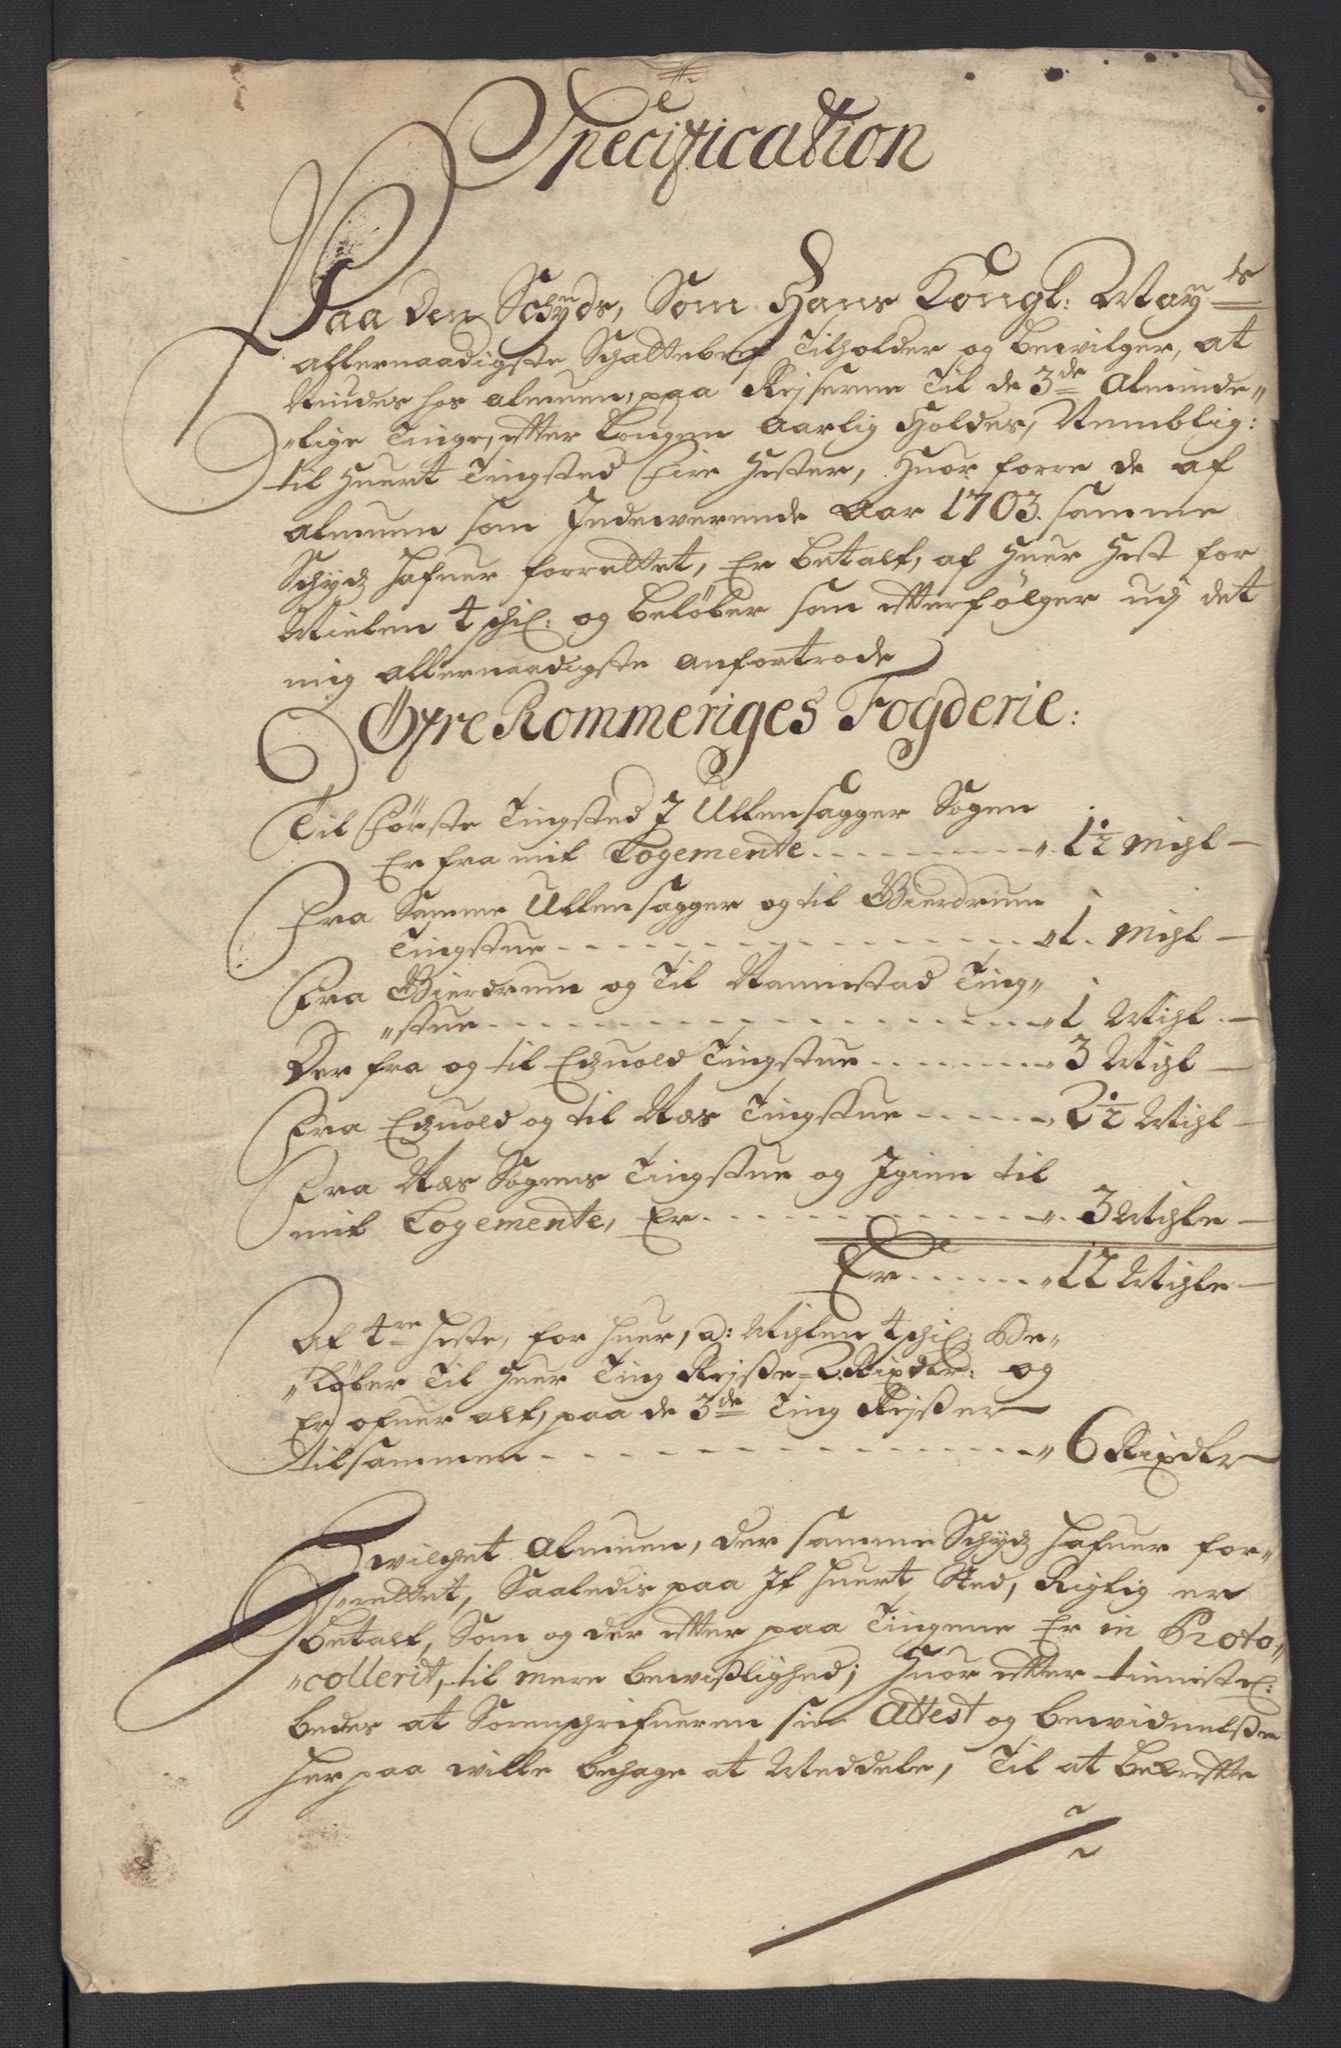 Specification
Paa den Schyds, Som Hans Kongl: May:ts
allernaadigste Schattebref Tilholder og bevilger, at
Niudes hos almuen, paa Rejserne Til de 3de Alminde„
„lige Tinge, efter Lougen Aarlig Holdes, Nemblig:
til Huert Tingsted Fire Hester, Huor forre de af
almuen som Indeverende Aar 1703. samme
Schydz hafuer forrettet, Er betalt, af Huer Hest for
Miehlen 4 schil: og beløber som efterfølger udj det
mig allernaadigste anfortrode
Øfre Rommeriges Fogderie:
Til Første Tingsted J Ullensagger Sogen
Er fra mit Logemente „ 1½ Mihl
Fra Samme Ullensagger og til Gierdrum
Tingstue „ 1. Mihl
Fra Gierdrum og Til Nannestad Ting„
„stue „ 1 Mihl
Der fra og til Edzuold Tingstue „ 3 Mihl
Fra Edzuold og til Næs Tingstue „ 2½ Mihl
Fra Næs Sogens Tingstue og Igien til
mit Logemente, Er „ 3 Mihle
Er „ 12 Mihle
Af 4re Heste, for huer, a: Mihlen 4 schil: Be„
„løber Til Huer Ting Rejsse = 2 Rixdlr: og
Er ofuer alt, paa de 3de Ting Rejsser
tilsammen „ 6 Rixdlr
Hvilchet Almuen, der samme Schydz hafuer for„
„rettet, Saaledis paa it huert Sted, Rigtig er
betalt, Som og der efter paa Tingene Er in Proto„
„collerit, til mere bevisslighed; Huor efter tienistl:
bedes at Sorenschrifueren sin Attest og bevidnelsse
her paa wille behage at Meddele, Til at bekrefte